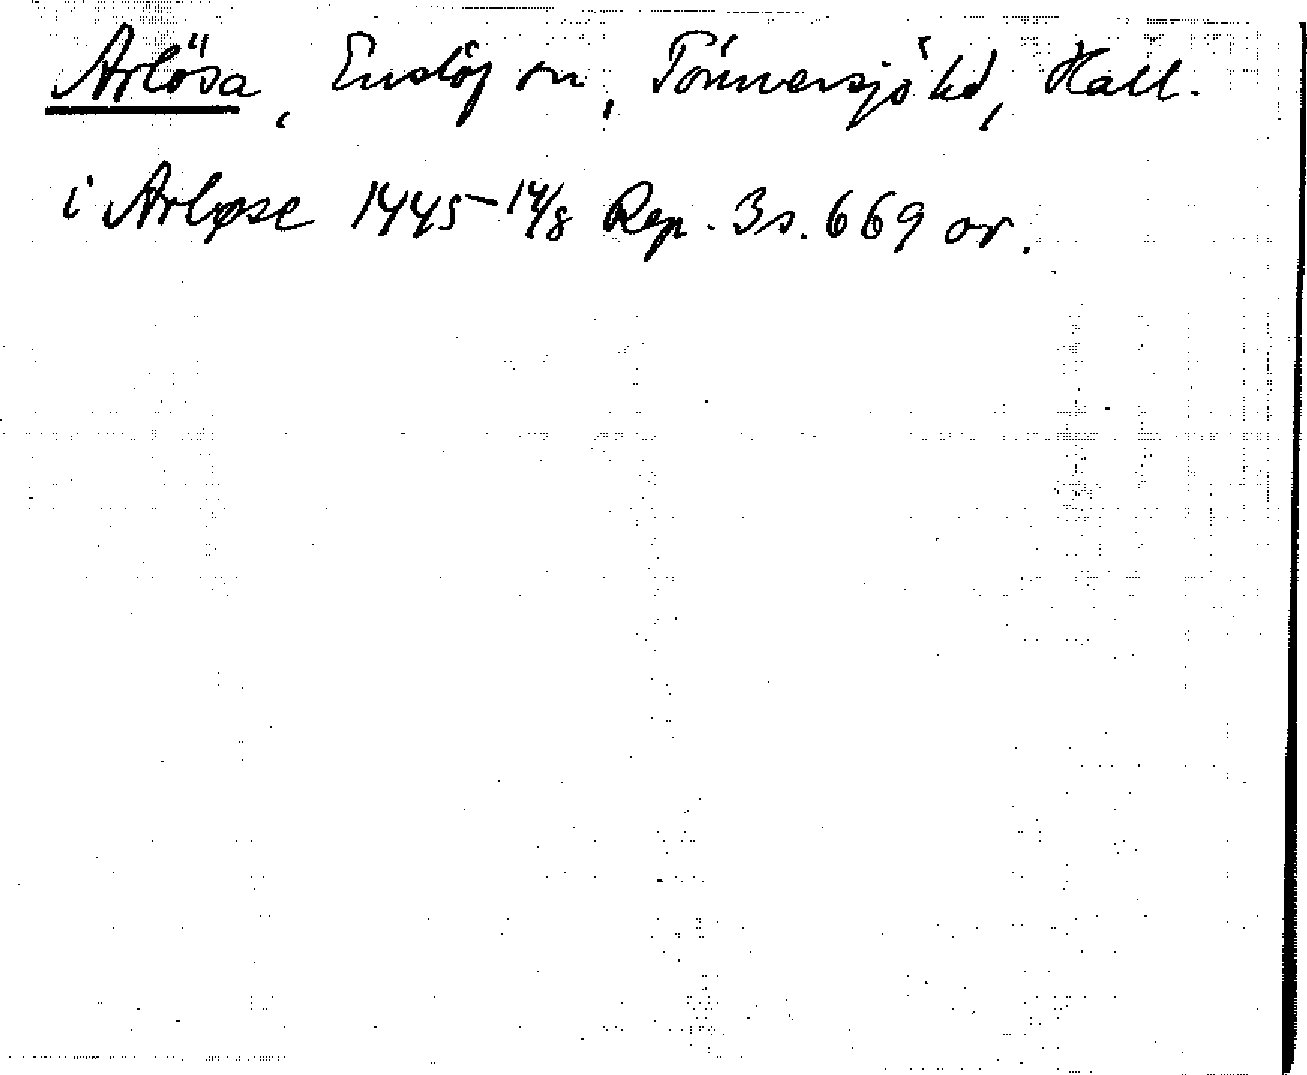 Arlösa, Enslöv sn, Tönnersjö hd, Hall.
i Arløse 1445 14/8 Rep. 3 s. 669 or.